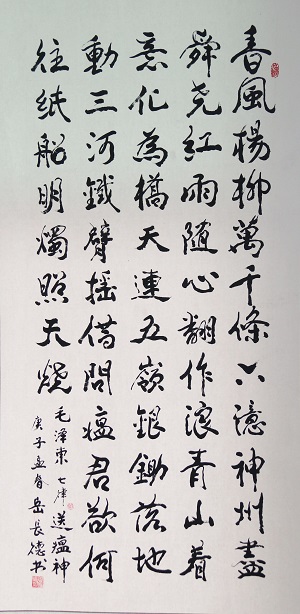 春風楊柳萬千條六億神州盡
舜尧紅雨随心翻作浪青山着
意化為橋天連五嶺銀鋤落地
動三河鐵臂摇借問瘟君欲何
往纸船明燭照天燒
毛泽東七律送瘟神
庚子孟春岳長德书